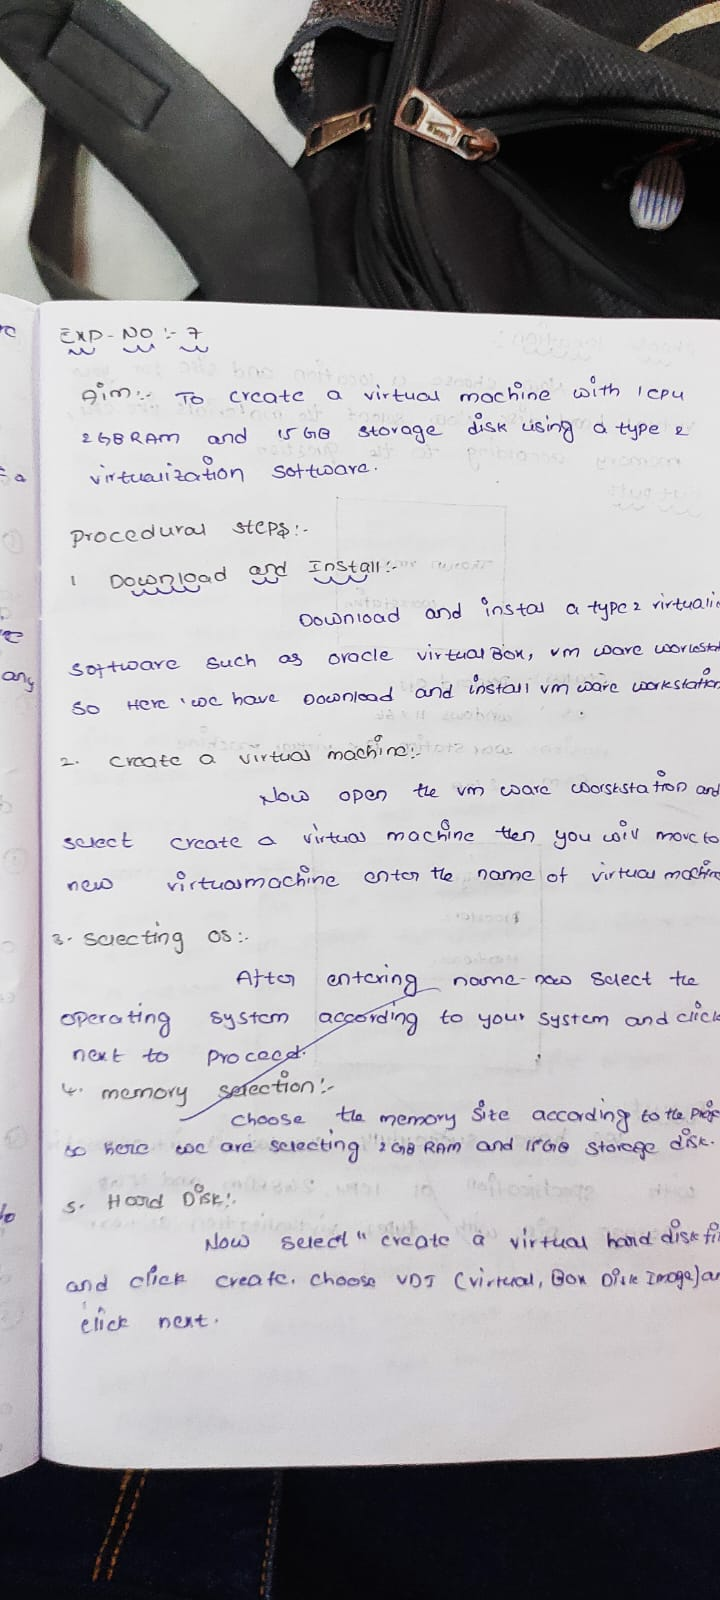 EXP-NO :- 7
Aim:- To create a virtual machine with 1 CPU
2GB RAM and 15 GB storage disk using a type 2
virtualization software.
procedural steps:-
1 Download and Install:-
Download and instal a type 2 virtualiz
software such as oracle virtualBox, vm ware workstat
so Here we have Download and install vm ware workstation
2. create a virtual machine:-
Now open the vm ware worskstation and
select create a virtual machine then you will move to
new virtualmachine enter the name of virtual machine
3. selecting OS:-
After entering name now Select the
operating system according to your system and click
next to proceed.
4. memory selection:-
choose the memory Size according to the
so here we are selecting 2GB RAM and 15GB storage disk.
5. Hard Disk:-
Now select "create a virtual hard disk fi
and click create. choose VDI (virtual, Box Disk Image) an
click next.